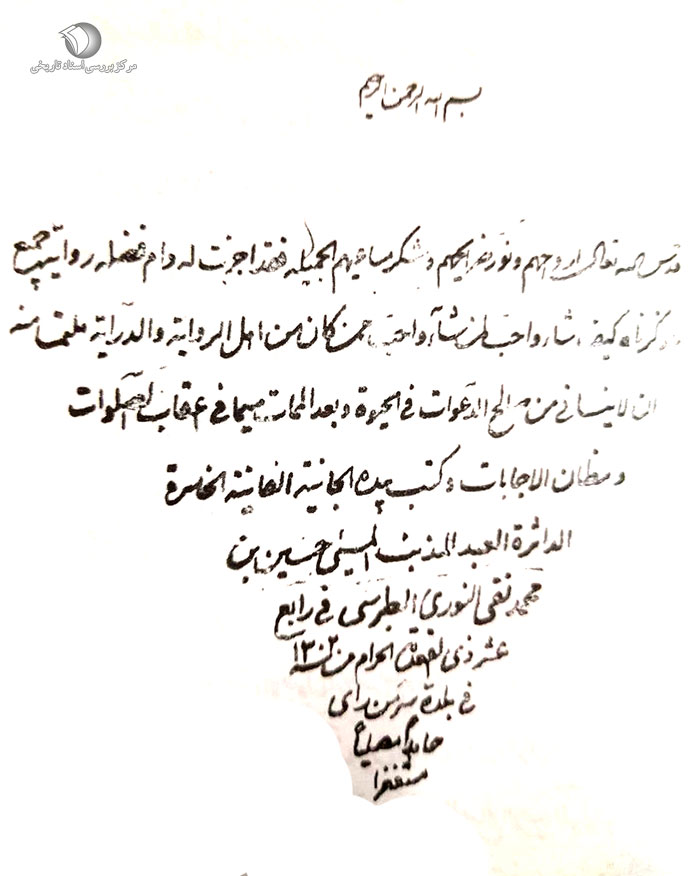 مرکز بررسی اسناد تاریخی
بسم الله الرحمن الرحیم
قدس الله تعالی ارواحهم ونور ضرایحهم وشکر مساعیهم الجمیله فقد اجزت له دام فضله روایة جمیع
ما ذکرناه کیف شاء واحب لمن شآء واحب ممن کان من اهل الروایة والدرایة ملتمسا منه
ان لا ینسانی من صالح الدعوات فی الحیوة وبعد الممات سیما فی اعقاب الصلوات
ومظان الاجابات وکتب بیده الجانیة الفانیة الخاسرة
الداثرة العبد المذنب المسئ حسین بن
محمد تقی النوری الطبرسی فی رابع
عشر ذی القعدة الحرام من سنة ١٣٠٢
فی بلدة سر من رای
حامدا مصلیا
مستغفرا